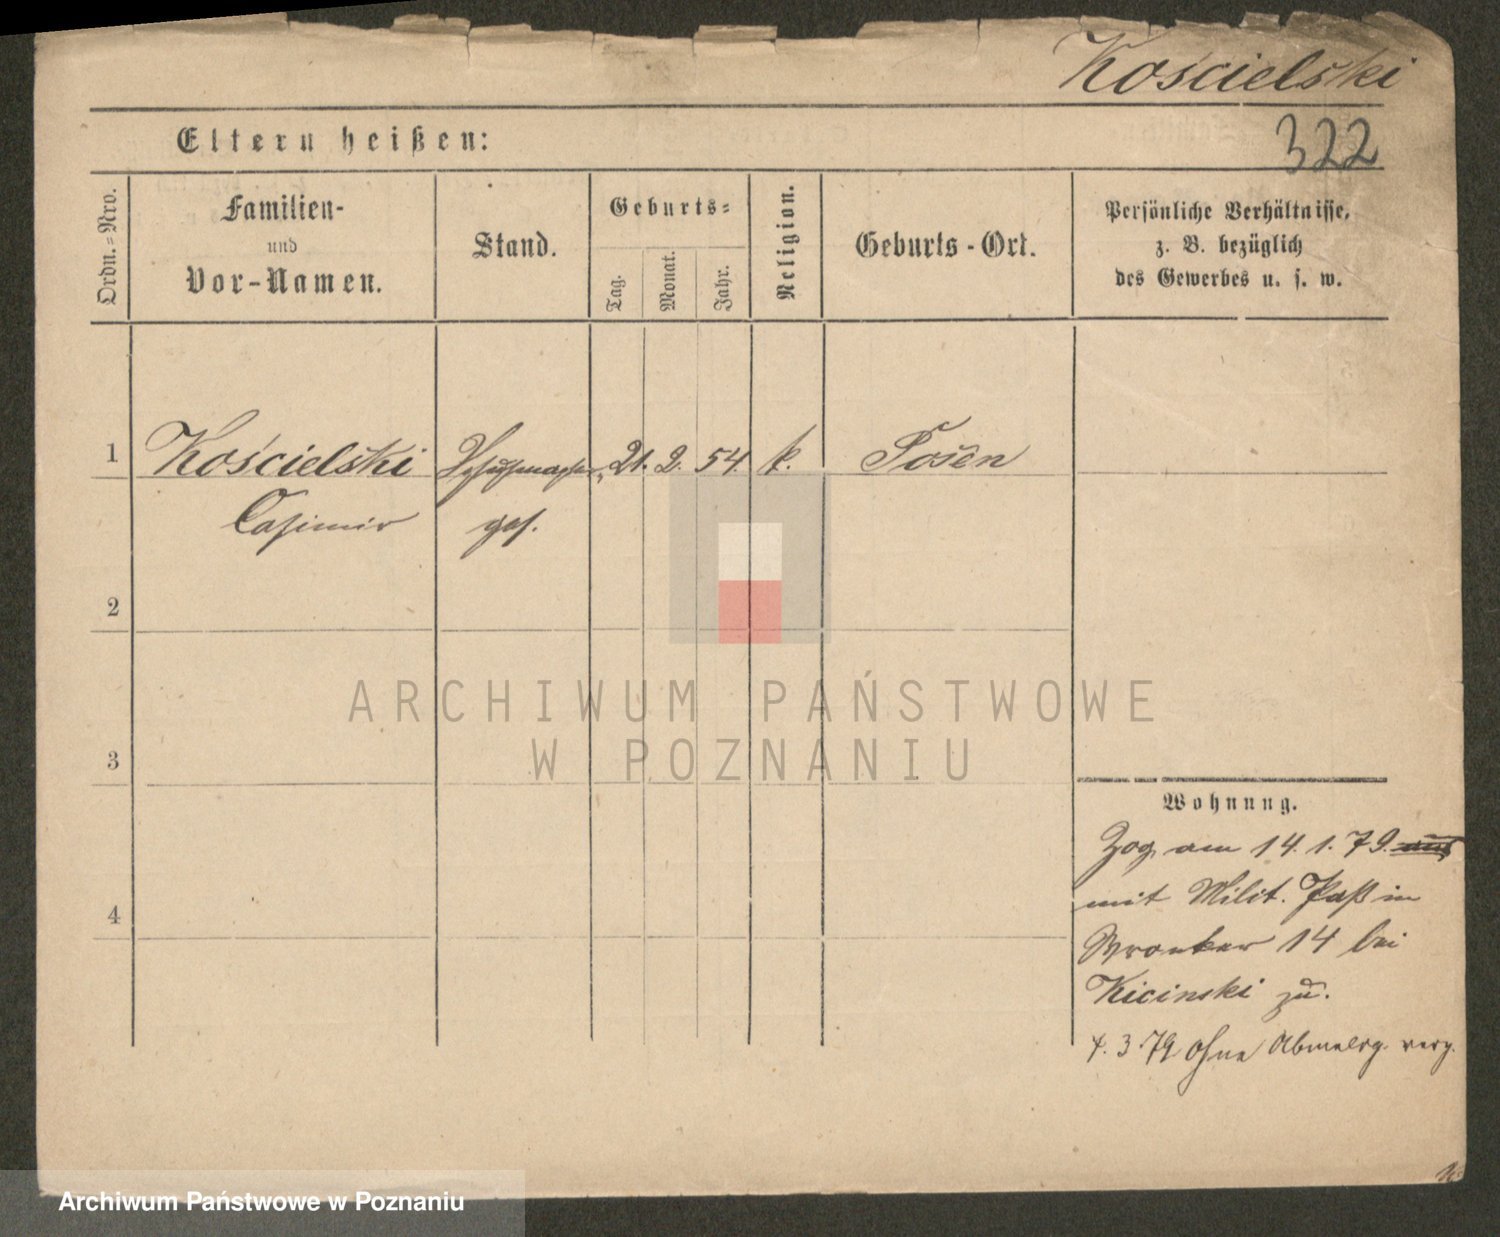 Kościelski
Eltern heißen:
322
Ordn.=Nro.
Familien-
und
Vor-Namen.
Stand.
Geburts=
Tag.
Monat.
Jahr.
Religion.
Geburts-Ort.
Persönliche Verhältnisse,
z. B. bezüglich
des Gewerbes u. s. w.
1 Kościelski Schuhmacher 21. 2. 54. k. Posen
Casimir ges.
2
ARCHIWUM PAŃSTWOWE
W POZNANIU
3
Wohnung.
Zog am 14. 1. 79. aus
mit Milit. Paß in
4
Wronker 14 bei
Kicinski zu.
4. 3 79 ohne
Archiwum Państwowe w Poznaniu